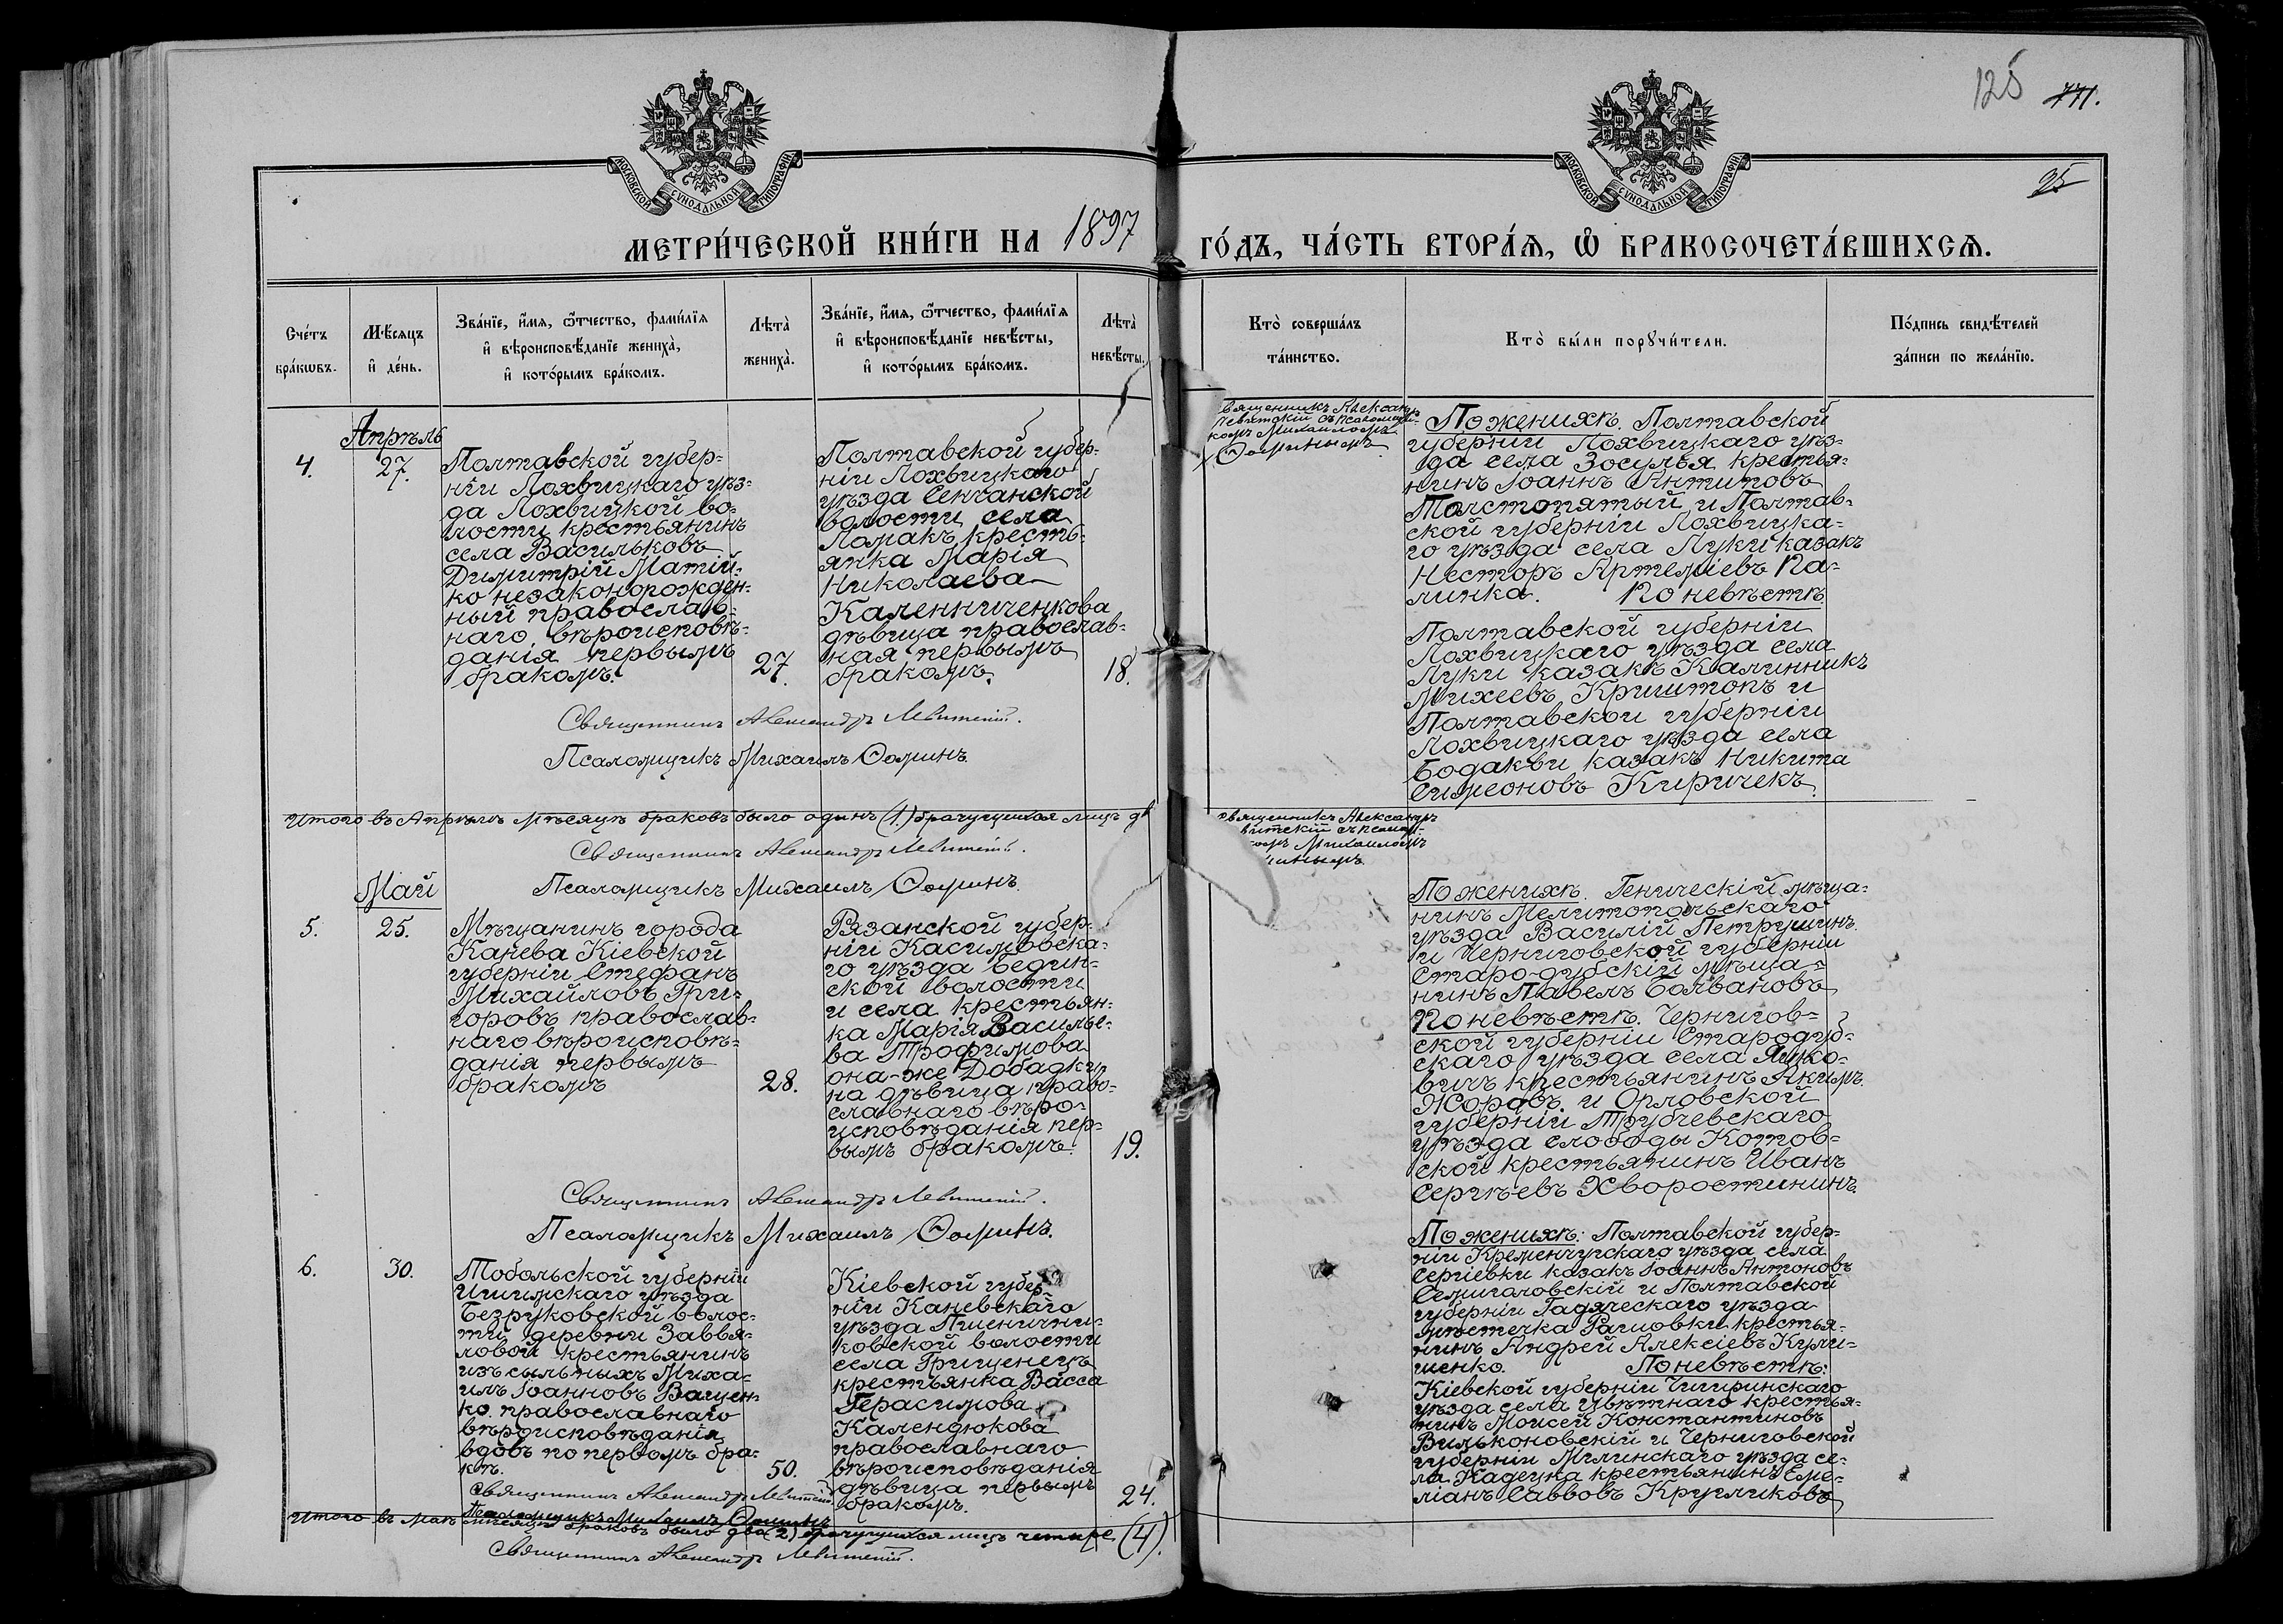 125 771.
95
МОСКОВСКОЙ СѴНОДАЛЬНОЙ ТИПОГРАФІИ
МОСКОВСКОЙ СѴНОДАЛЬНОЙ ТИПОГРАФІИ
МЕТРИ́ЧЕСКОЙ КНИ́ГИ НА 1897 ГО́ДЪ, ЧА́СТЬ ВТОРА́Я, Ѡ БРАКОСОЧЕТА́ВШИХСЯ.
Сче́тъ
бра́кѡвъ.
Мѣ́сяцъ
и҆ де́нь.
Зва́нїе, и҆́мя, ѻ҆́тчество, фами́лїя
и҆ вѣроисповѣ́данїе жениха̀,
и҆ кото́рымъ бра́комъ.
Лѣта̀
жениха̀.
Зва́нїе, и҆́мя, ѻ҆́тчество, фами́лїя
и҆ вѣроисповѣ́данїе невѣ́сты,
и҆ кото́рымъ бра́комъ.
Лѣта̀
невѣ́сты.
Кто̀ соверша́лъ
та́инство.
Кто̀ бы́ли порꙋчи́тели.
По́дпись свидѣ́телей
за́писи по жела́нїю.
Апрѣль
4.
27.
Полтавской губер-
ніи Лохвицкаго уѣз-
да Лохвицкой во-
лости крестьянинъ
села Васильковъ
Димитрій Матій-
ко незаконорожден-
ный православ-
наго вѣроисповѣ-
данія первымъ
бракомъ.
27.
Полтавской губер-
ніи Лохвицкаго
уѣзда Сенчанской
волости села
Ломакъ кресть-
янка Марія
Николаева
Каленниченкова
дѣвица православ-
ная первымъ
бракомъ.
18.
вященникъ Александръ
Левитскій съ псаломщи-
комъ Михаиломъ
Ѳоминымъ.
По женихѣ. Полтавской
губерніи Лохвицкаго уѣз-
да села Зосулья крестья-
нинъ Іоаннъ Антиповъ
Толстопятый и Полтав-
ской губерніи Лохвицка-
го уѣзда села Луки казакъ
Несторъ Артеміевъ Ка-
линка. По невѣстѣ
Полтавской губерніи
Лохвицкаго уѣзда села
Луки казакъ Калинникъ
Михеевъ Криштопъ и
Полтавской губерніи
Лохвицкаго уѣзда села
Бодакви казакъ Никита
Симеоновъ Киричекъ.
Священникъ Александръ Левитскій.
Псаломщикъ Михаилъ Ѳоминъ.
Итого въ Апрѣлѣ мѣсяцѣ браковъ было одинъ (1.) брачущихся лицъ
Священникъ Александръ Левитскій.
Псаломщикъ Михаилъ Ѳоминъ.
Май
5.
25.
Мѣщанинъ города
Канева Кіевской
губерніи Стефанъ
Михайловъ Гри-
горовъ православ-
наго вѣроисповѣ-
данія первымъ
бракомъ
28.
Рязанской губер-
ніи Касимовска-
го уѣзда Бедин-
ской волости
и села крестьян-
ка Марія Василье-
ва Трофимова
она-же Добадки-
на дѣвица право-
славнаго вѣро-
исповѣданія пер-
вымъ бракомъ.
19.
вященникъ Александръ
витскій съ псалом-
комъ Михаиломъ
иинымъ
По женихѣ. Геническій мѣща-
нинъ Мелитопольскаго
уѣзда Василій Петрушинъ
и Черниговской губерніи
Старо-дубскій мѣща-
нинъ Павелъ Болвановъ
По невѣстѣ. Чернигов-
ской губерніи Стародуб-
скаго уѣзда села Яцко-
вичъ крестьянинъ Якимъ
Жоровъ и Орловской
губерніи Трубчевскаго
уѣзда слободы Котов-
ской крестьянинъ Иванъ
Сергѣевъ Хворостининъ.
Священникъ Александръ Левитскій.
Псаломщикъ Михаилъ Ѳоминъ.
6.
30.
Тобольской губерніи
Ишимскаго уѣзда
Безруковской волос-
ти деревни Заввя-
ловой крестьянинъ
изъ сыльныхъ Миха-
илъ Іоанновъ Ващен-
ко православнаго
вѣроисповѣданія
вдовъ по первомъ бра-
кѣ.
50.
Кіевской губер-
ніи Каневскаго
уѣзда Пшенични-
ковской волости
села Грищенецъ
крестьянка Васса
Герасимова
Календюкова
православнаго
вѣроисповѣданія
дѣвица первымъ
бракомъ.
24.
По женихѣ: Полтавской губер-
ніи Кременчугскаго уѣзда села
Сергіевки казакъ Іоаннъ Антоновъ
Семигаловскій и Полтавской
губерніи Гадяческаго уѣзда
мѣстечка Рашовки крестья-
нинъ Андрей Алексіевъ Кули-
шенко. По невѣстѣ:
Кіевской губерніи Чигиринскаго
уѣзда села Цвѣтнаго крестья-
нинъ Моисей Константиновъ
Вильконовскій и Черниговской
губерніи Мглинскаго уѣзда се-
ла Кадецка крестьянинъ Еме-
ліанъ Саввовъ Кругликовъ
Священникъ Александръ Левитскій
Псаломщикъ Михаилъ Ѳоминъ
Итого въ маѣ мѣсяцѣ браковъ было два (2) брачущихся лицъ четыре (4).
Священникъ Александръ Левитскій.